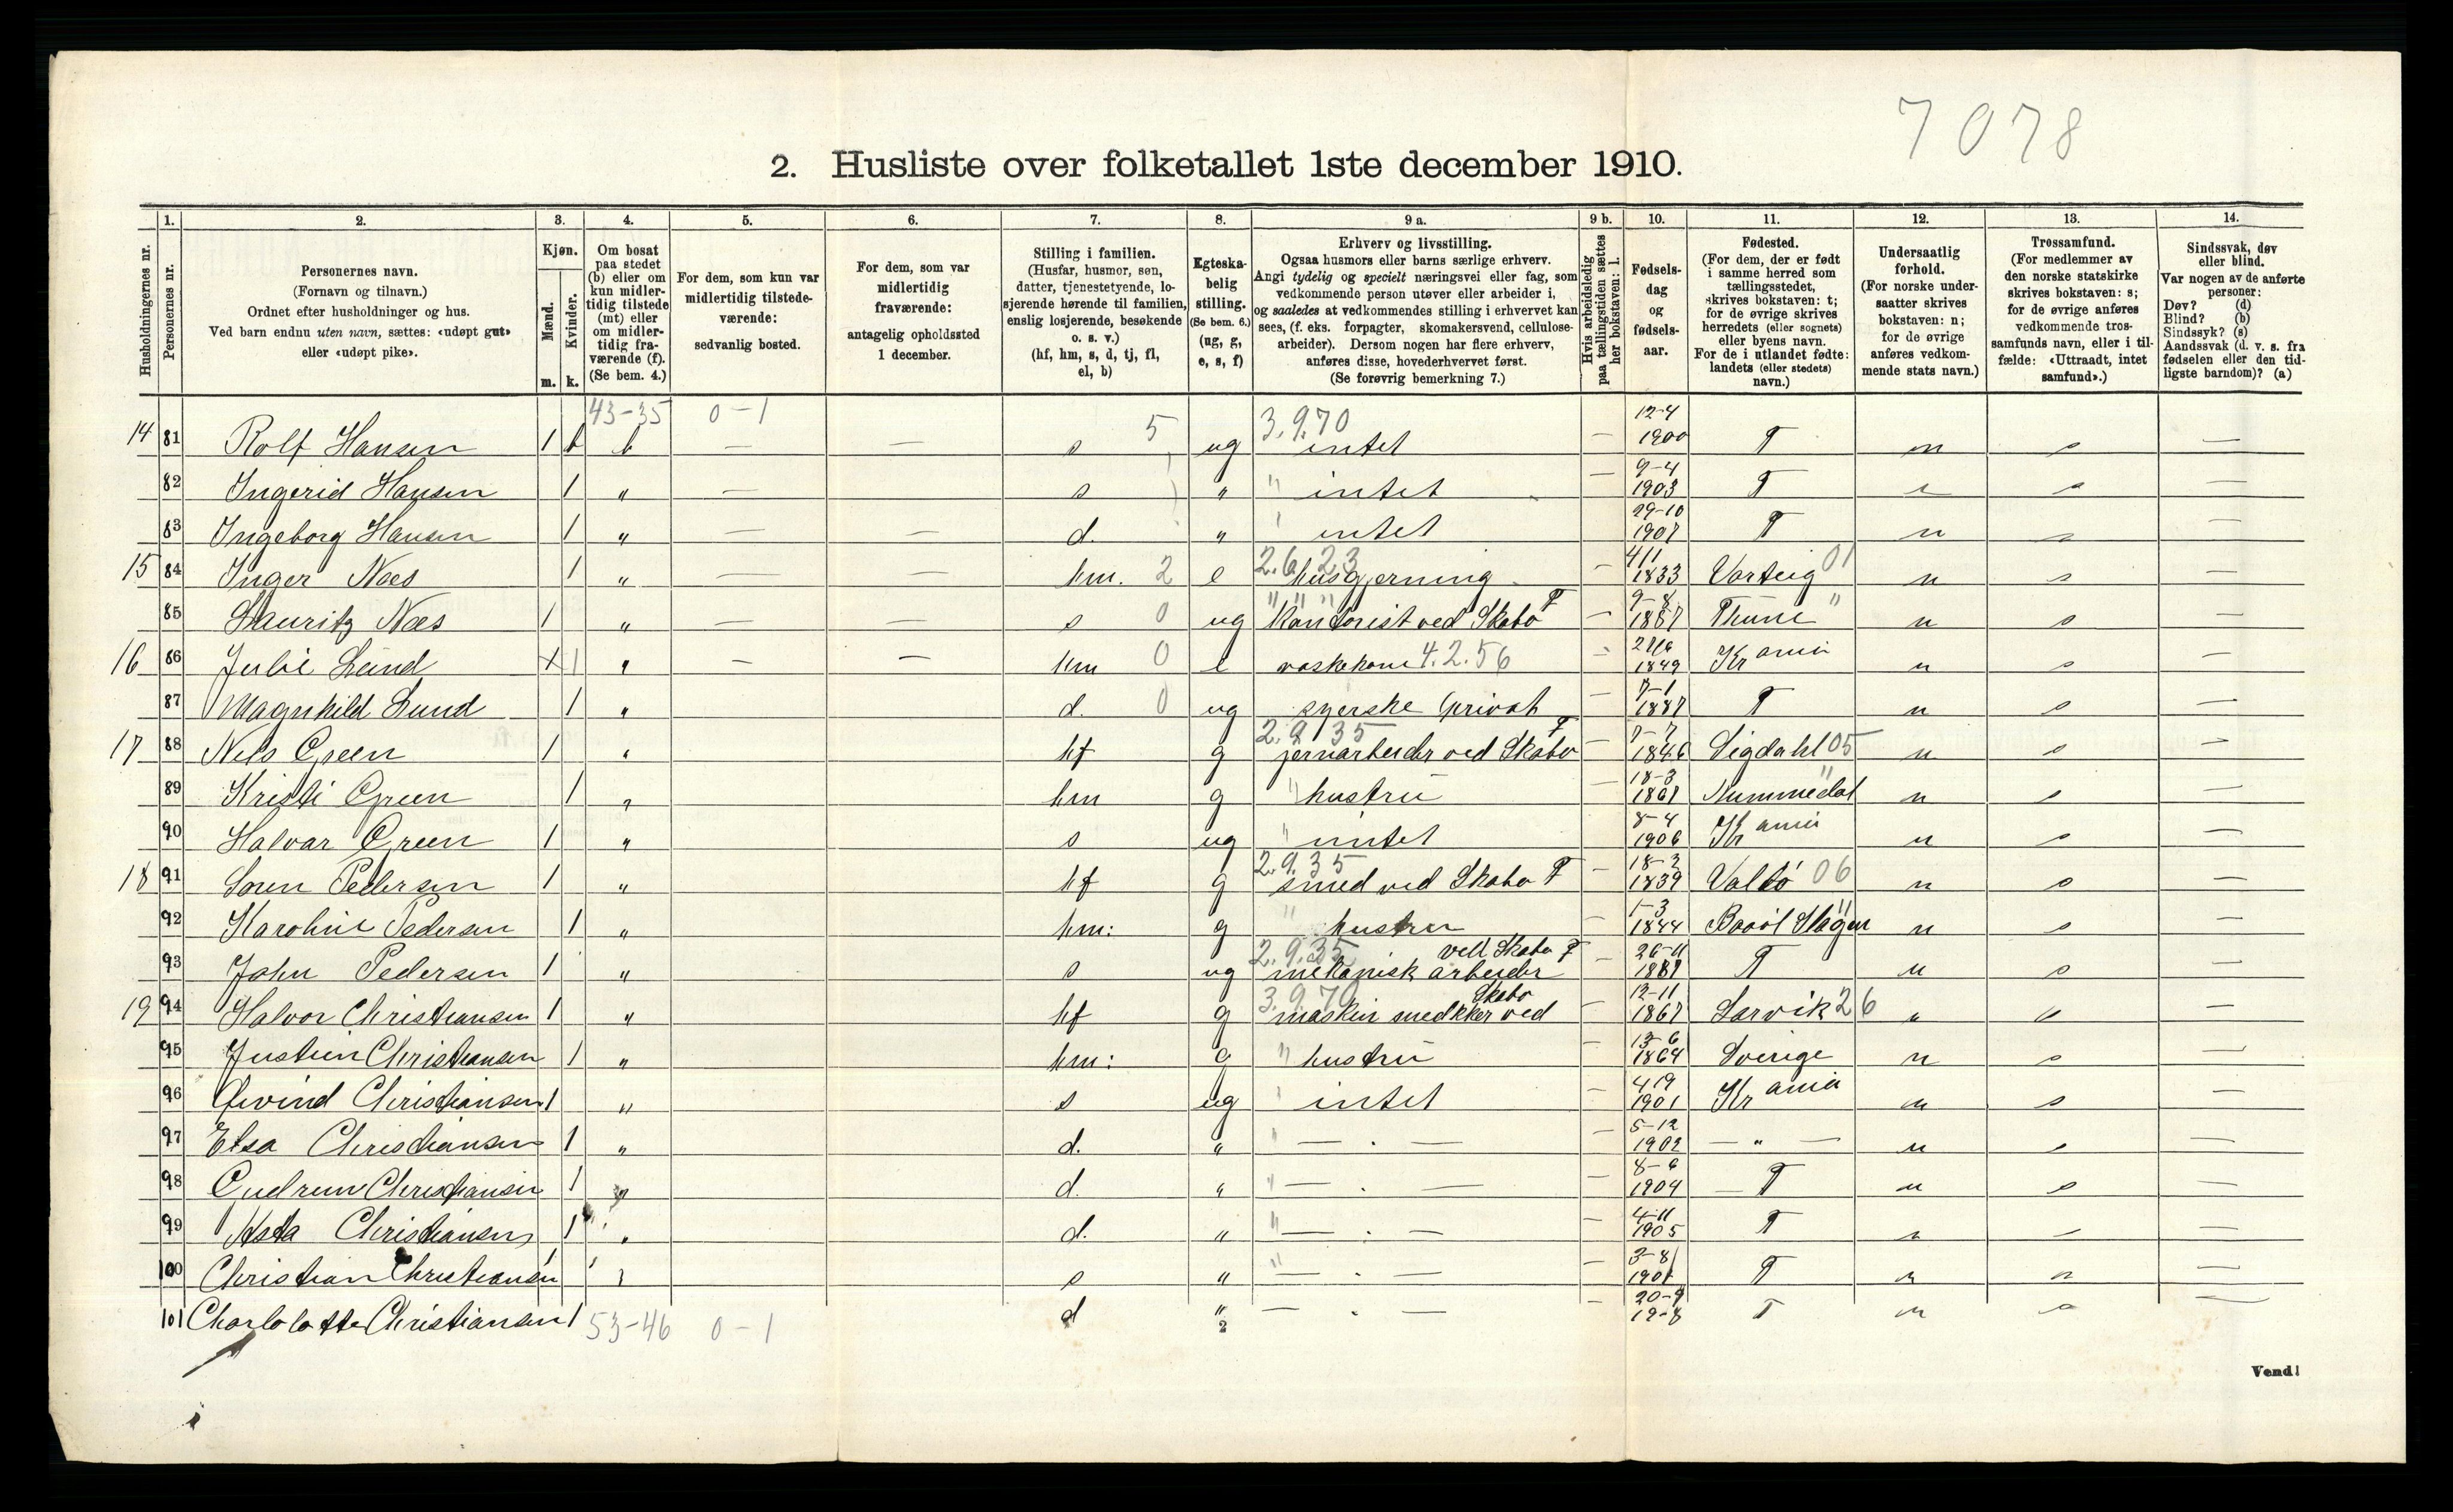 7078
2. Husliste over folketallet 1ste december 1910.
Husholdningernes nr.
1. Personernes nr.
2. Personernes navn.
(Fornavn og tilnavn.)
Ordnet efter husholdninger og hus.
Ved barn endnu uten navn, sættes: «udøpt gut»
eller «udøpt pike».
3. Kjøn.
Mænd. m.
Kvinder. k.
4. Om bosat
paa stedet
(b) eller om
kun midler-
tidig tilstede
(mt) eller
om midler-
tidig fra-
værende (f).
(Se bem. 4.)
5. For dem, som kun var
midlertidig tilstede-
værende:
sedvanlig bosted.
6. For dem, som var
midlertidig
fraværende:
antagelig opholdssted
1 december.
7. Stilling i familien.
(Husfar, husmor, søn,
datter, tjenestetyende, lo-
sjerende hørende til familien,
enslig losjerende, besøkende
o. s. v.)
(hf, hm, s, d, tj, fl,
el, b)
8. Egteska-
belig
stilling.
(Se bem. 6.)
(ug, g,
e, s, f)
9 a. Erhverv og livsstilling.
Ogsaa husmors eller barns særlige erhverv.
Angi tydelig og specielt næringsvei eller fag, som
vedkommende person utøver eller arbeider i,
og saaledes at vedkommendes stilling i erhvervet kan
sees, (f. eks. forpagter, skomakersvend, cellulose-
arbeider). Dersom nogen har flere erhverv,
anføres disse, hovederhvervet først.
(Se forøvrig bemerkning 7.)
9 b. Hvis arbeidsledig
paa tællingstiden sættes
her bokstaven: l.
10. Fødsels-
dag
og
fødsels-
aar.
11. Fødested.
(For dem, der er født
i samme herred som
tællingsstedet,
skrives bokstaven: t;
for de øvrige skrives
herredets (eller sognets)
eller byens navn.
For de i utlandet fødte:
landets (eller stedets)
navn.)
12. Undersaatlig
forhold.
(For norske under-
saatter skrives
bokstaven: n;
for de øvrige
anføres vedkom-
mende stats navn.)
13. Trossamfund.
(For medlemmer av
den norske statskirke
skrives bokstaven: s;
for de øvrige anføres
vedkommende tros-
samfunds navn, eller i til-
fælde: «Uttraadt, intet
samfund».)
14. Sindssvak, døv
eller blind.
Var nogen av de anførte
personer:
Døv? (d)
Blind? (b)
Sindssyk? (s)
Aandssvak (d. v. s. fra
fødselen eller den tid-
ligste barndom)? (a)
43-35 0-1
14 81 Rolf Hansen 1 b — — s 5 ug 3.9.70 intet — 12-4 1900 T n s —
82 Ingerid Hansen 1 " — s " " intet — 9-4 1903 T s —
83 Ingeborg Hansen 1 " — — d. " intet 29-10 1907 T n s —
15 84 Inger Næs 1 " — — hm. 2 e 2.6.23 husgjerning — 4/11 1833 Varteig 01 n s —
85 Lauritz Næs 1 " — — s 0 ug " " " Kontorist ved Skabo T — 9-8 1867 Thune " n s —
16 86 Julie Lund 1 " — — hm 0 e vaskekone 4.2.56 1849 Kr ania n s —
87 Magnhild Lund 1 " d. 0 ug syerske privat — 7-1 1887 T n s —
17 88 Nils Green 1 " hf g 2.9.35 jernarbeider ved Skabo T — 7-7 1846 Sigdahl 05 n s —
89 Kristi Green 1 " hm g " hustru — 18-3 1861 Nummedal " n s —
90 Halvar Green 1 " s ug " intet 8-4 1906 Kr ania n s —
18 91 Søren Pedersen 1 " hf g 2.9.35 smed ved Skabo T — 18-3 1839 Valø 06 n s —
92 Karoline Pedersen 1 " hm: g " hustru — 1-3 1844 n s —
93 John Pedersen 1 " s ug 2.9.35 mekanisk arbeider ved Skabo T — 26-11 1881 T n s —
19 94 Halvor Christiansen 1 " hf g 3.9.70 maskin snedkker ved Skabo — 12-11 1867 Larvik 26 " s —
95 Justine Christiansen 1 " hm: g " hustru — 13-6 1864 Sverige n s —
96 Øivind Christiansen 1 " s ug intet — 4/9 1901 Kr ania n s —
97 Elsa Christiansen 1 " d. " " — . — — 5-12 1902 — " — n s —
98 Gudrun Christiansen 1 " d. " " — . — — 8-6 1904 T n s —
99 Asta Christiansen 1 " d. " " — . — — 4-11 1905 T n —
100 Christian Christiansen 1 s " " — . — — 3-8 T n —
101 Charlolotte Christiansen 1 d " — . — — 20-9 T n s —
53-46 0-1
Vend!